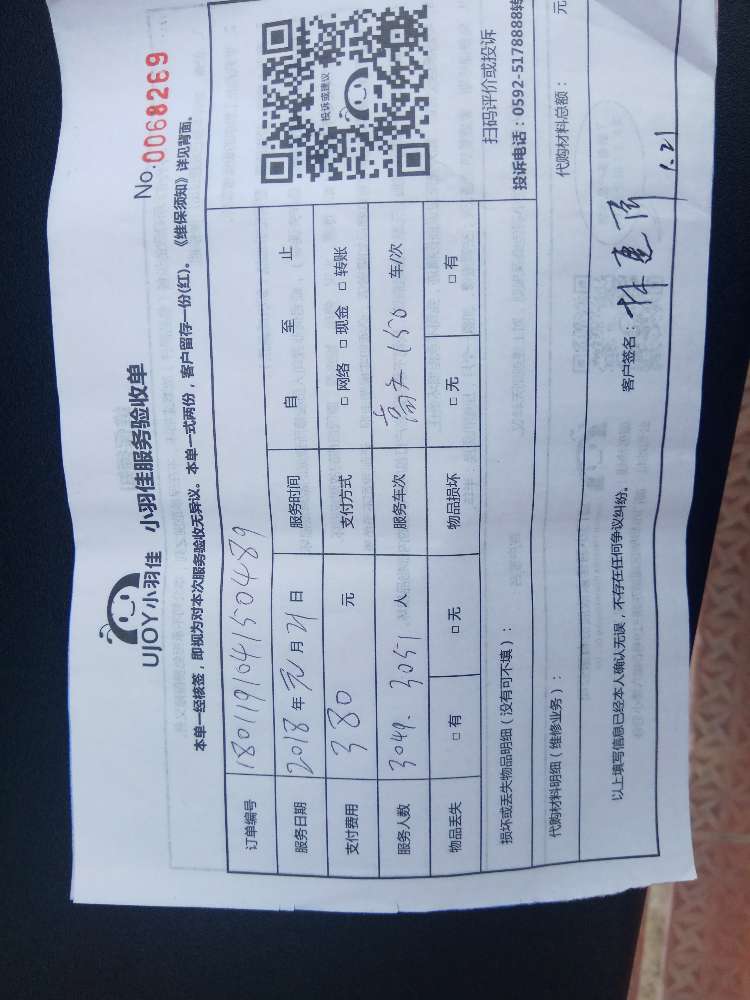 UJOY小羽佳 小羽佳服务验收单
No. 0068269
本单一经核签，即视为对本次服务验收无异议。本单一式两份，客户留存一份(红)。《维保须知》详见背面。
订单编号 180119104150489
服务日期 2018年元月21日 服务时间 自 至 止
支付费用 380 元 支付方式 □ 网络 □ 现金 □ 转账
服务人数 3049. 3051 人 服务车次 150 车/次
物品丢失 □ 有 □ 无 物品损坏 □ 无 □ 有
投诉或建议
扫码评价或投诉
投诉电话：0592-5178888转
损坏或丢失物品明细（没有可不填）：
代购材料明细（维修业务）： 代购材料总额： 元
以上填写信息已经本人确认无误，不存在任何争议纠纷。 客户签名： 1.21